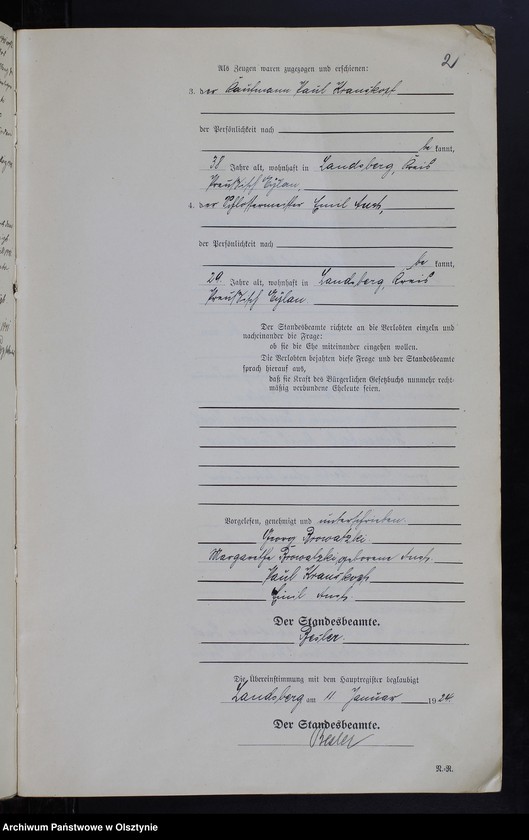 2
Als Zeugen waren zugezogen und erschienen:
3. der Kaufmann Paul Kranskopf
der Persönlichkeit nach
be kannt,
38 Jahre alt, wohnhaft in Landsberg, Kreis
Preußisch Eylau,
4. der Schlossermeister Emil
der Persönlichkeit nach
be kannt,
29. Jahre alt, wohnhaft in Landsberg, Kreis
Preußisch Eylau
Der Standesbeamte richtete an die Verlobten einzeln und
nacheinander die Frage:
ob sie die Ehe miteinander eingehen wollen.
Die Verlobten bejahten diese Frage und der Standesbeamte
sprach hierauf aus,
daß sie kraft des Bürgerlichen Gesetzbuchs nunmehr recht-
mäßig verbundene Eheleute seien.
Vorgelesen, genehmigt und unterschrieben.
Georg Prowatzki
Margarethe Prowatzki geborene
Paul Kranskopf
Emil
Der Standesbeamte.
Besler
Die Übereinstimmung mit dem Hauptregister beglaubigt
Landsberg am 11 Januar 1924
Der Standesbeamte.
Besler
R.-R.
Archiwum Państwowe w Olsztynie